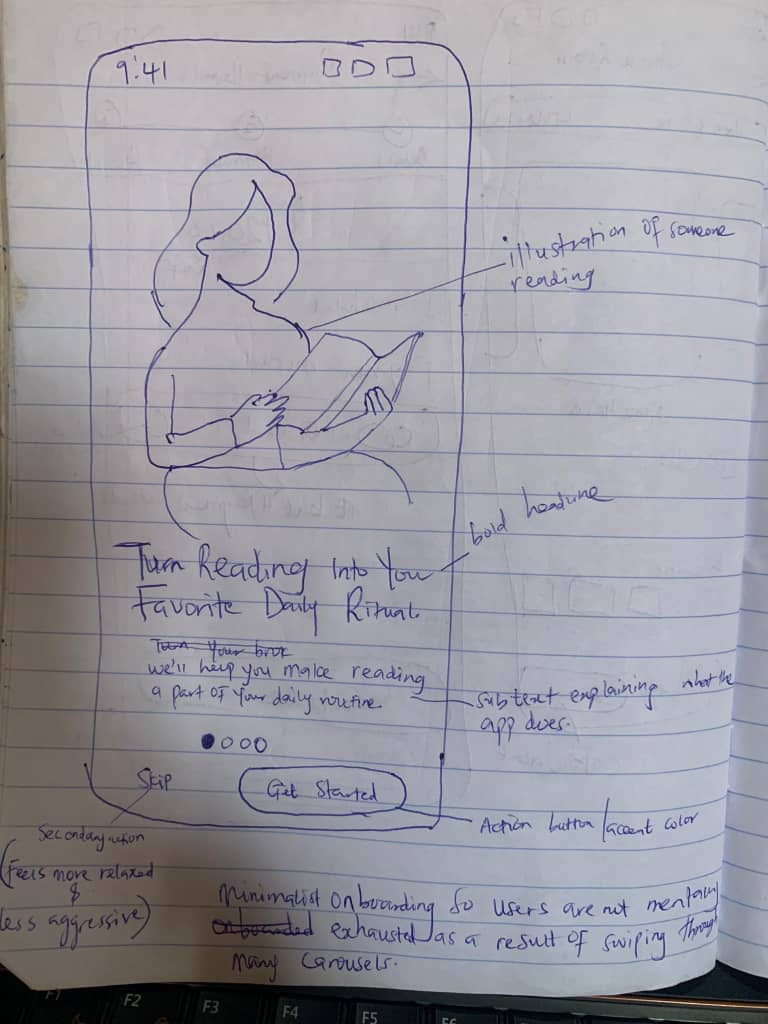 9:41
illustration of someone
reading
bold headline
Turn Reading Into You
Favorite Daily Ritual
Turn Your
we'll help you make reading
a part of your daily routine
subtext explaining what the
app does.
Skip
Get Started
Secondary action
(Feels more relaxed
&
less aggressive)
Action button/accent color
Minimalist Onboarding So users are not mentally
onboarded exhausted as a result of swiping through
many carousels.
F1
F2
F3
F4
F5
F6